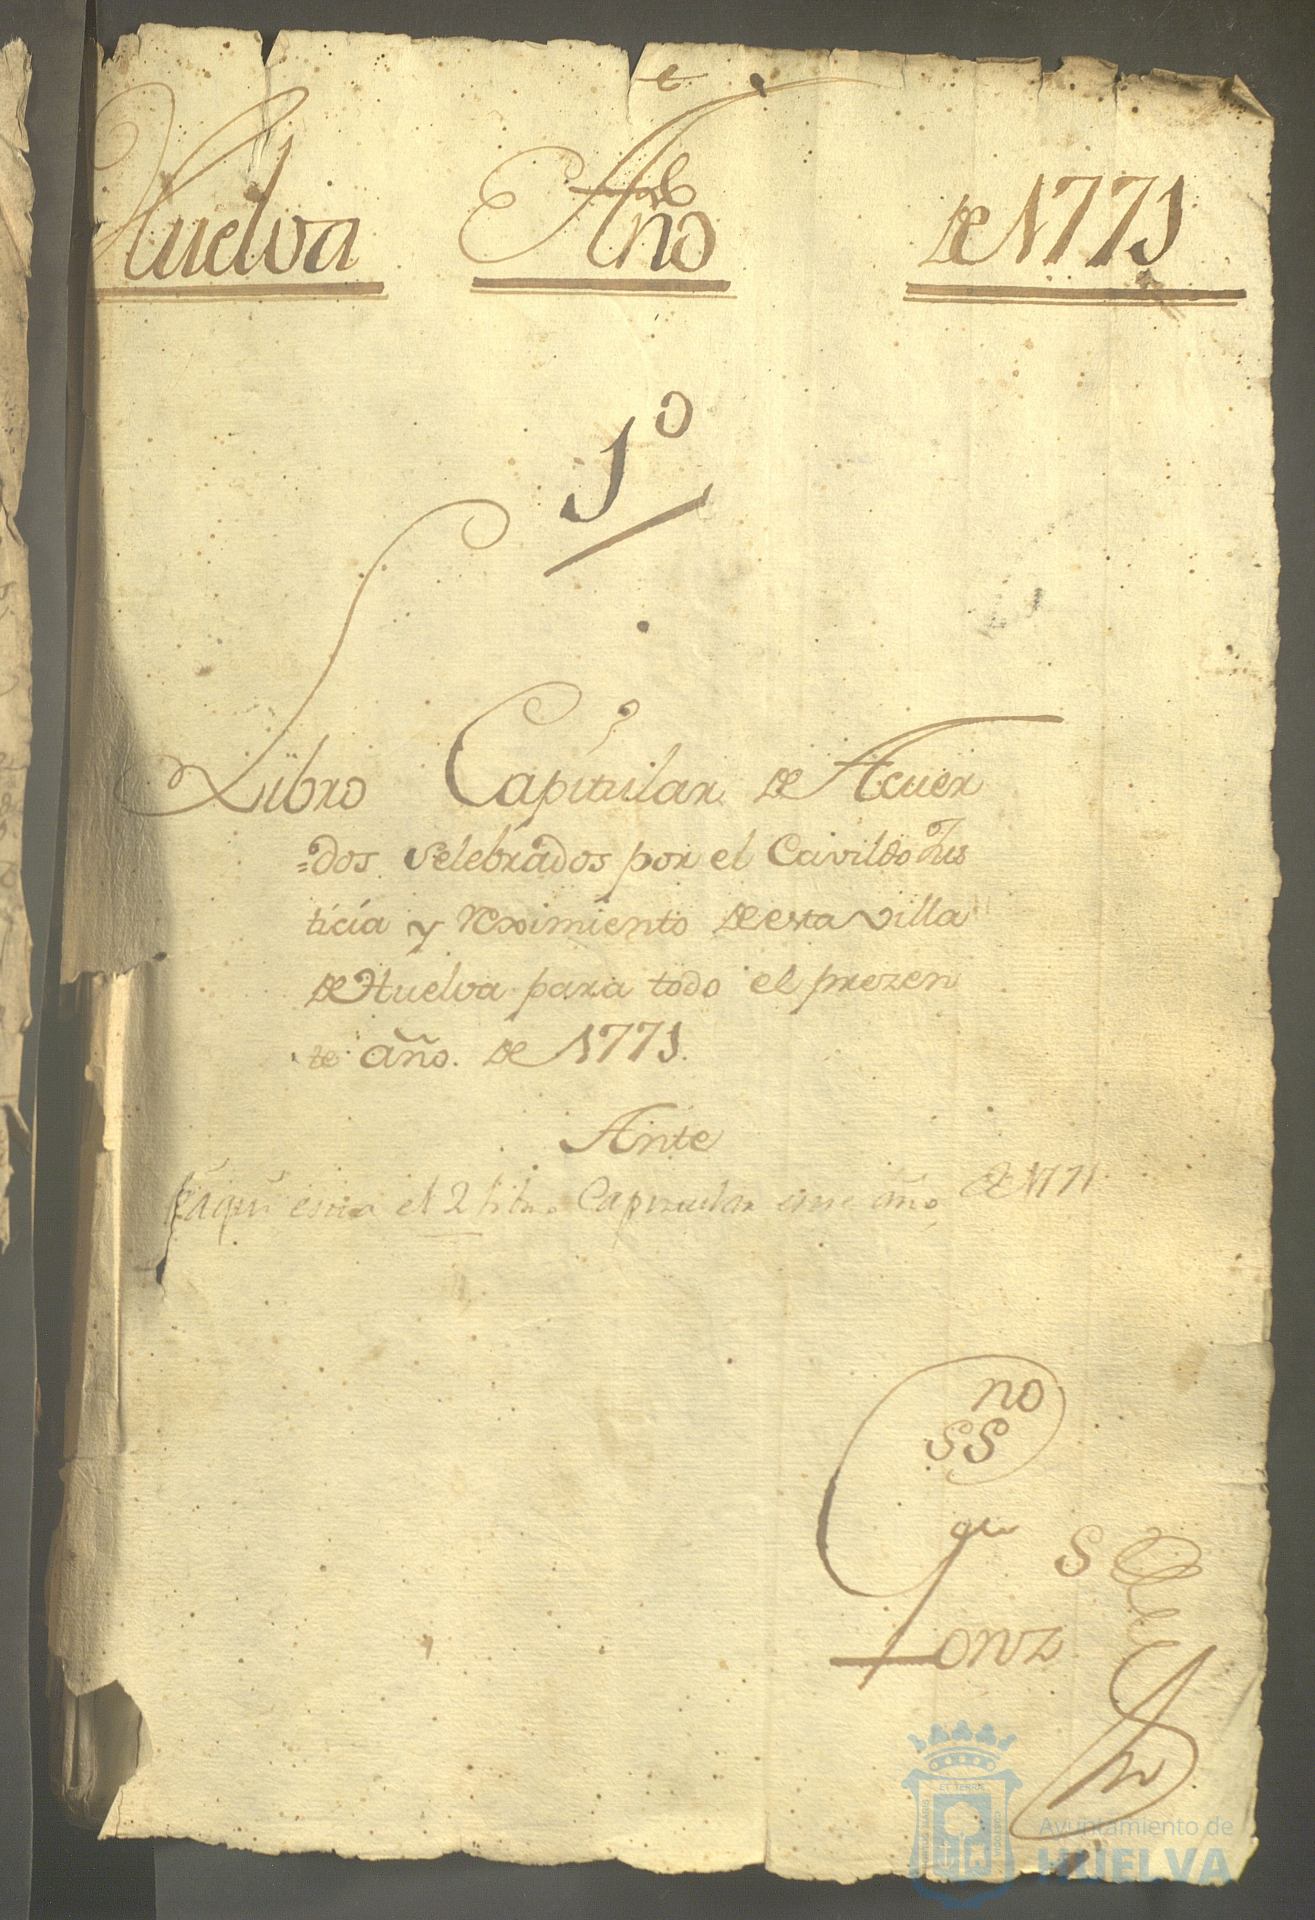 Huelva Año de 1771
1º
Libro Capitular de Acuer
dos Selebrados por el Cavildo Jus
ticia y Reximiento de esta villa
de Huelva para todo el prezen
te año. de 1771.
Ante
aqui esta el 2 libro Capitular este año de 1771
no
SS
Gonz
Ayuntamiento de
HUELVA